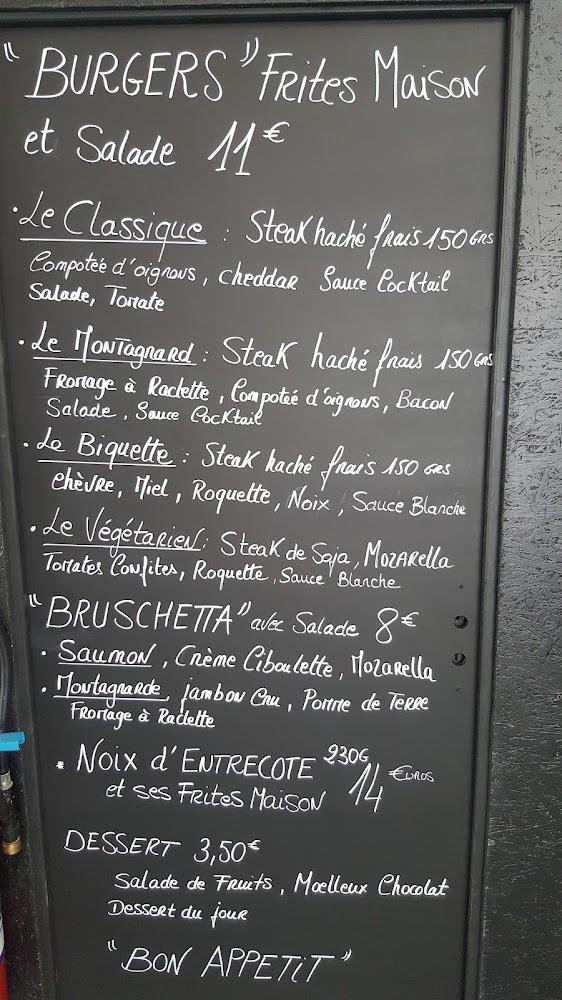 "BURGERS" FRites MaisoN
et Salade 11€
· Le Classique : Steak haché frais 150 GRS
Compotée d'oignons, cheddar Sauce Cocktail
Salade, Tomate
· Le MONTAGNARD : Steak haché frais 150 GRS
Fromage à Raclette, Compotée d'oignons, Bacon
Salade, Sauce Cocktail
· Le Biquette : Steak haché frais 150 GRS
chèvre, Miel, Roquette, Noix, Sauce Blanche
· Le Végétarien : Steak de Soja, Mozarella
Tomates Confites, Roquette, Sauce Blanche
"BRUSCHETTA" avec Salade 8€
· Saumon, Crème Ciboulette, Mozarella
· Montagnarde, jambon Cru, Pomme de Terre
Fromage à Raclette
* Noix d'ENTRECOTE 230G 14 €uros
et ses FRites MaisoN
DESSERT 3,50€
Salade de Fruits, Moelleux Chocolat
Dessert du jour
"BON APPETIT"